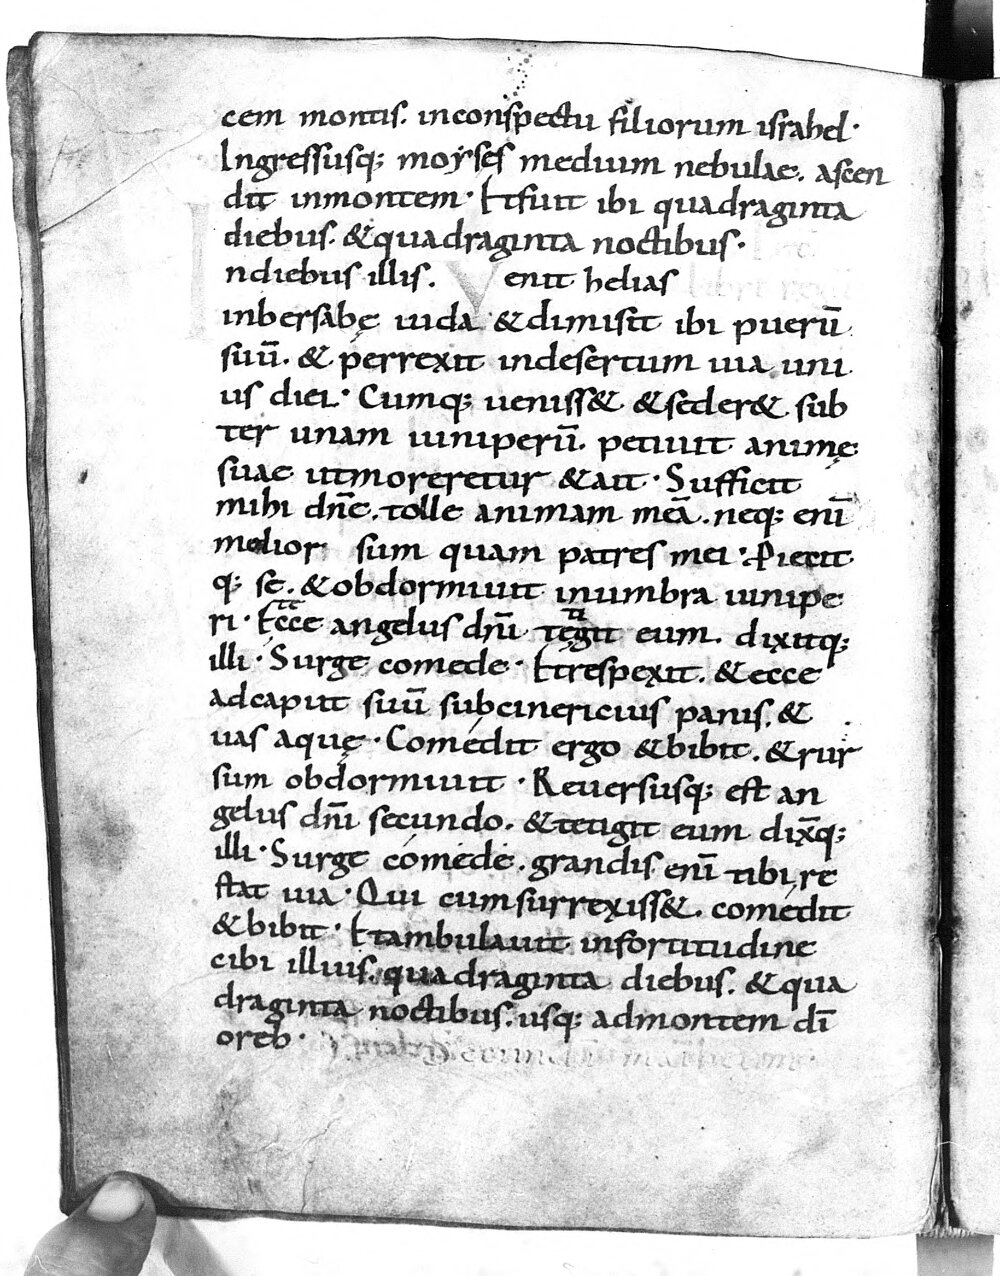 cem montis. inconspectu filiorum israhel·
Ingressusq; moyses medium nebulae. ascen
dit inmontem· Et fuit ibi quadraginta
diebus. &quadraginta noctibus·
Indiebus illis. Venit helias
inbersabę iuda &dimisit ibi puerū
suū. & perrexit indesertum uia uni
us diei· Cumq; ueniss& &seder& sub
ter unam iuniperū. petiuit animę
suae utmoreretur &ait· Sufficit
mihi dn̄e. tolle animam meā. neq; eni̅
melior sum quam patres mei· Piecit
q; se. &obdormiuit inumbra iunipe
ri· Ecce angelus dn̄i tęgit eum. dixitq;
illi· Surge comede· Etrespexit. &ecce
adcaput suū subcinericius panis. &
uas aquę· Comedit ergo &bibit. &rur
sum obdormiuit· Reuersusq; est an
gelus dn̄i secundo. &tetigit eum dix̄q;
illi· Surge comede. grandis eni̅ tibi re
stat uia· Qui cumsurrexiss&. comedit
&bibit· Etambulauit infortitudine
cibi illius. quadraginta diebus. &qua
draginta noctibus. usq; admontem di̅
oreb·